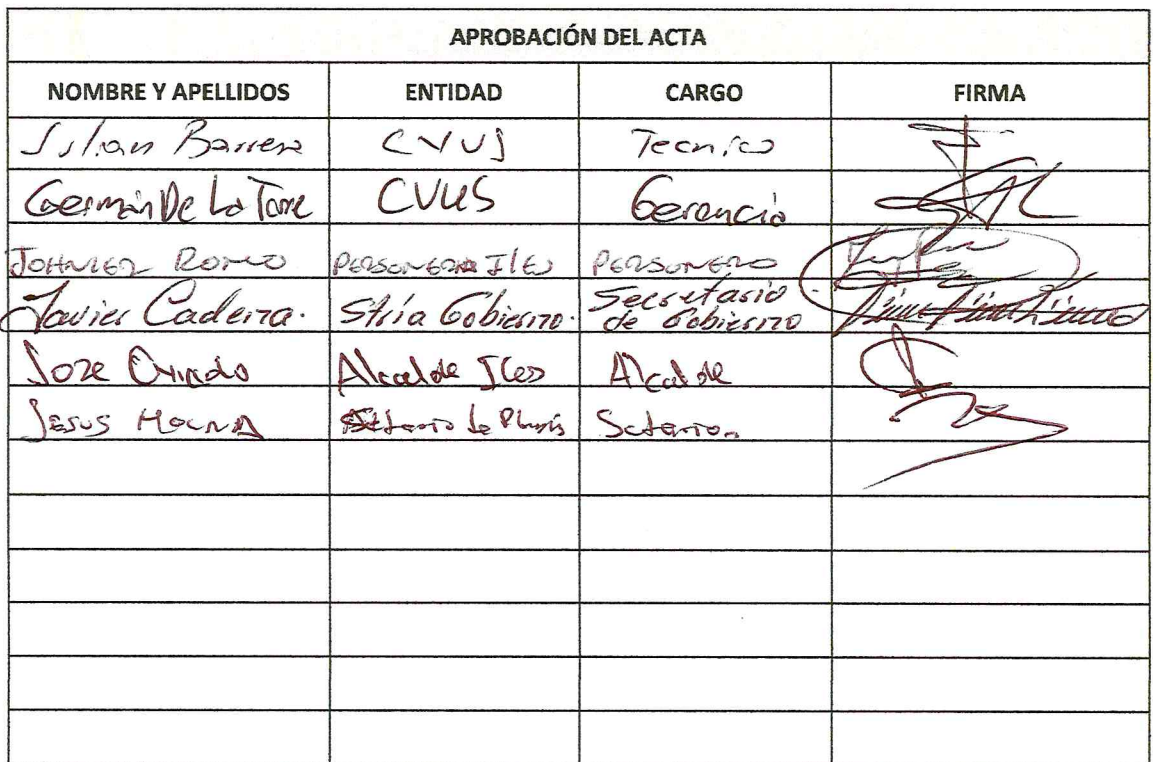 APROBACIÓN DEL ACTA
NOMBRE Y APELLIDOS ENTIDAD CARGO FIRMA
Julian Barrera CVUS Tecnico
Germán De La Torre CVUS Gerencia
JOHNIER ROMO PERSONERIA ILES PERSONERO
Javier Cadena. Stría Gobierno. Secretario de Gobierno
Jose Oviedo Alcalde Iles Alcalde
JESUS